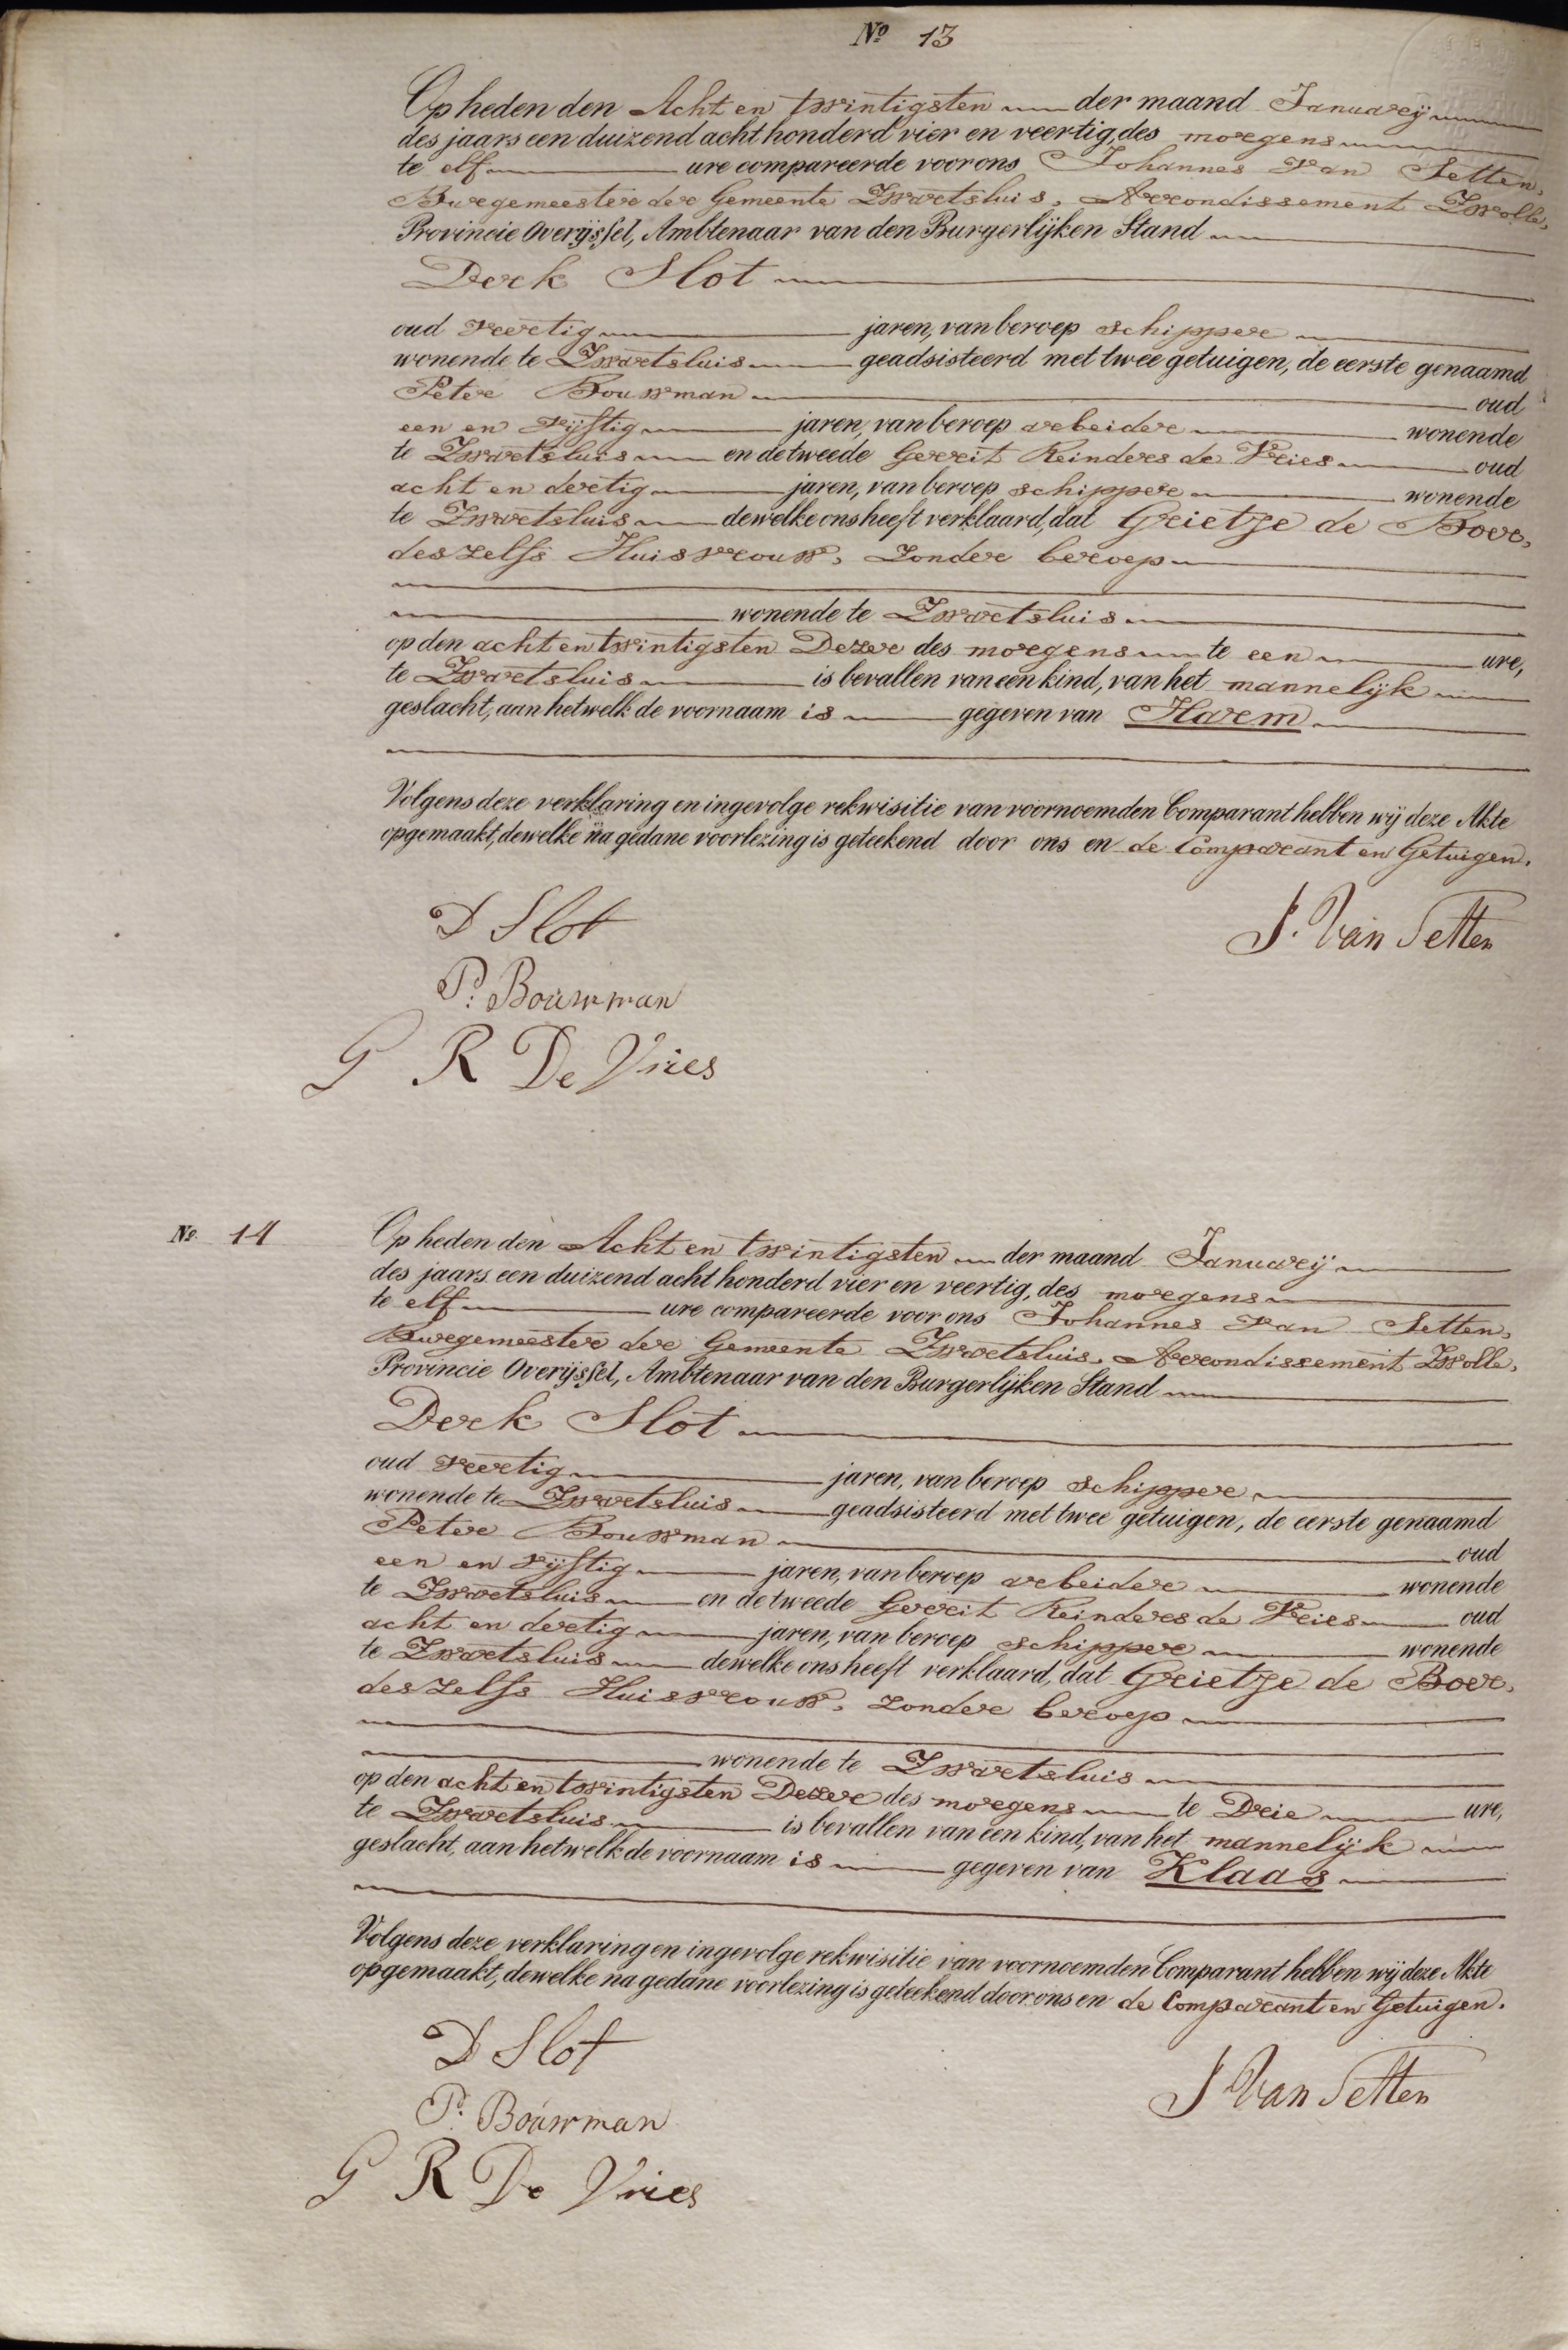 No 13
Op heden den Acht en twintigsten der maand Januarij
des jaars een duizend acht honderd vier en veertig, des morgens
te elf ure compareerde voor ons Johannes van Setten,
Burgemeester der Gemeente Zwartsluis, Arrondissement Zwolle,
Provincie Overijssel, Ambtenaar van den Burgerlijken Stand
Derk Slot
oud veertig jaren, van beroep schipper
wonende te Zwartsluis geadsisteerd met twee getuigen, de eerste genaamd
Peter Bouwman oud
een en vijftig jaren, van beroep arbeider wonende
te Zwartsluis en de tweede Gerrit Reinders de Vries oud
acht en dertig jaren, van beroep schipper wonende
te Zwartsluis dewelke ons heeft verklaard, dat Grietje de Boer,
deszelfs Huisvrouw, zonder beroep
wonende te Zwartsluis
op den acht en twintigsten Dezer des morgens te een ure,
te Zwartsluis is bevallen van een kind, van het mannelijk
geslacht, aan hetwelk de voornaam is gegeven van Harm
Volgens deze verklaring en ingevolge rekwisitie van voornoemden Comparant hebben wij deze Akte
opgemaakt, dewelke na gedane voorlezing is geteekend door ons en de Comparant en Getuigen.
D Slot
J. Van Setten
P. Bouwman
G R De Vries
No. 14
Op heden den Acht en twintigsten der maand Januarij
des jaars een duizend acht honderd vier en veertig, des morgens
te elf ure compareerde voor ons Johannes van Setten,
Burgemeester der Gemeente Zwartsluis, Arrondissement Zwolle,
Provincie Overijssel, Ambtenaar van den Burgerlijken Stand
Derk Slot
oud veertig jaren, van beroep schipper
wonende te Zwartsluis geadsisteerd met twee getuigen, de eerste genaamd
Peter Bouwman oud
een en vijftig jaren, van beroep arbeider wonende
te Zwartsluis en de tweede Gerrit Reinders de Vries oud
acht en dertig jaren, van beroep schipper wonende
te Zwartsluis dewelke ons heeft verklaard, dat Grietje de Boer,
deszelfs Huisvrouw, zonder beroep
wonende te Zwartsluis
op den acht en twintigsten Dezer des morgens te Drie ure,
te Zwartsluis is bevallen van een kind, van het mannelijk
geslacht, aan hetwelk de voornaam is gegeven van Klaas
Volgens deze verklaring en ingevolge rekwisitie van voornoemden Comparant hebben wij deze Akte
opgemaakt, dewelke na gedane voorlezing is geteekend door ons en de Comparant en Getuigen.
D Slot
J Van Setten
P. Bouwman
G R De Vries